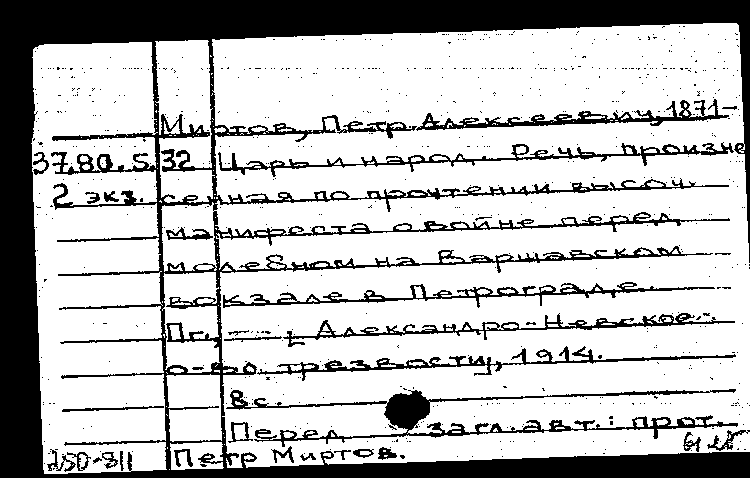 Миртов, Петр Алексеевич, 1871-
37.80.5.32 Царь и народ. Речь, произне
2 экз. сенная по прочтении высоч.
манифеста о войне перед
молебном на Варшавском
вокзале в Петрограде.
Пг., Александро-Невское
о-во трезвости, 1914.
8 с.
Перед загл. авт.: прот.
250-811 Петр Миртов.